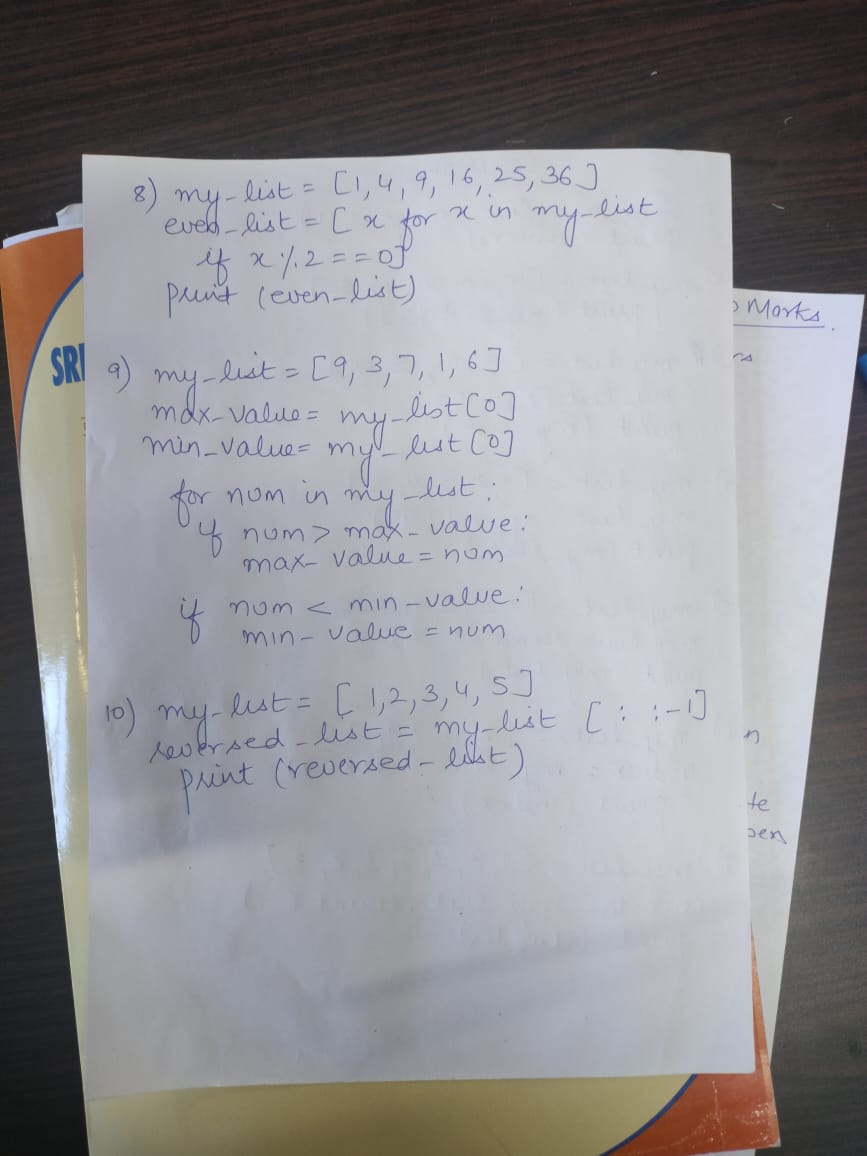 8) my-list = [1, 4, 9, 16, 25, 36]
even-list = [ x for x in my-list
if x % 2 == 0]
print (even-list)
9) my-list = [9, 3, 7, 1, 6]
max-value = my-list[0]
min-value = my-list[0]
for num in my-list:
if num > max-value:
max-value = num
if num < min-value:
min-value = num
10) my-list = [1, 2, 3, 4, 5]
reversed-list = my-list [: :-1]
print (reversed-list)
SRI
Marks.
rs
n
te
pen